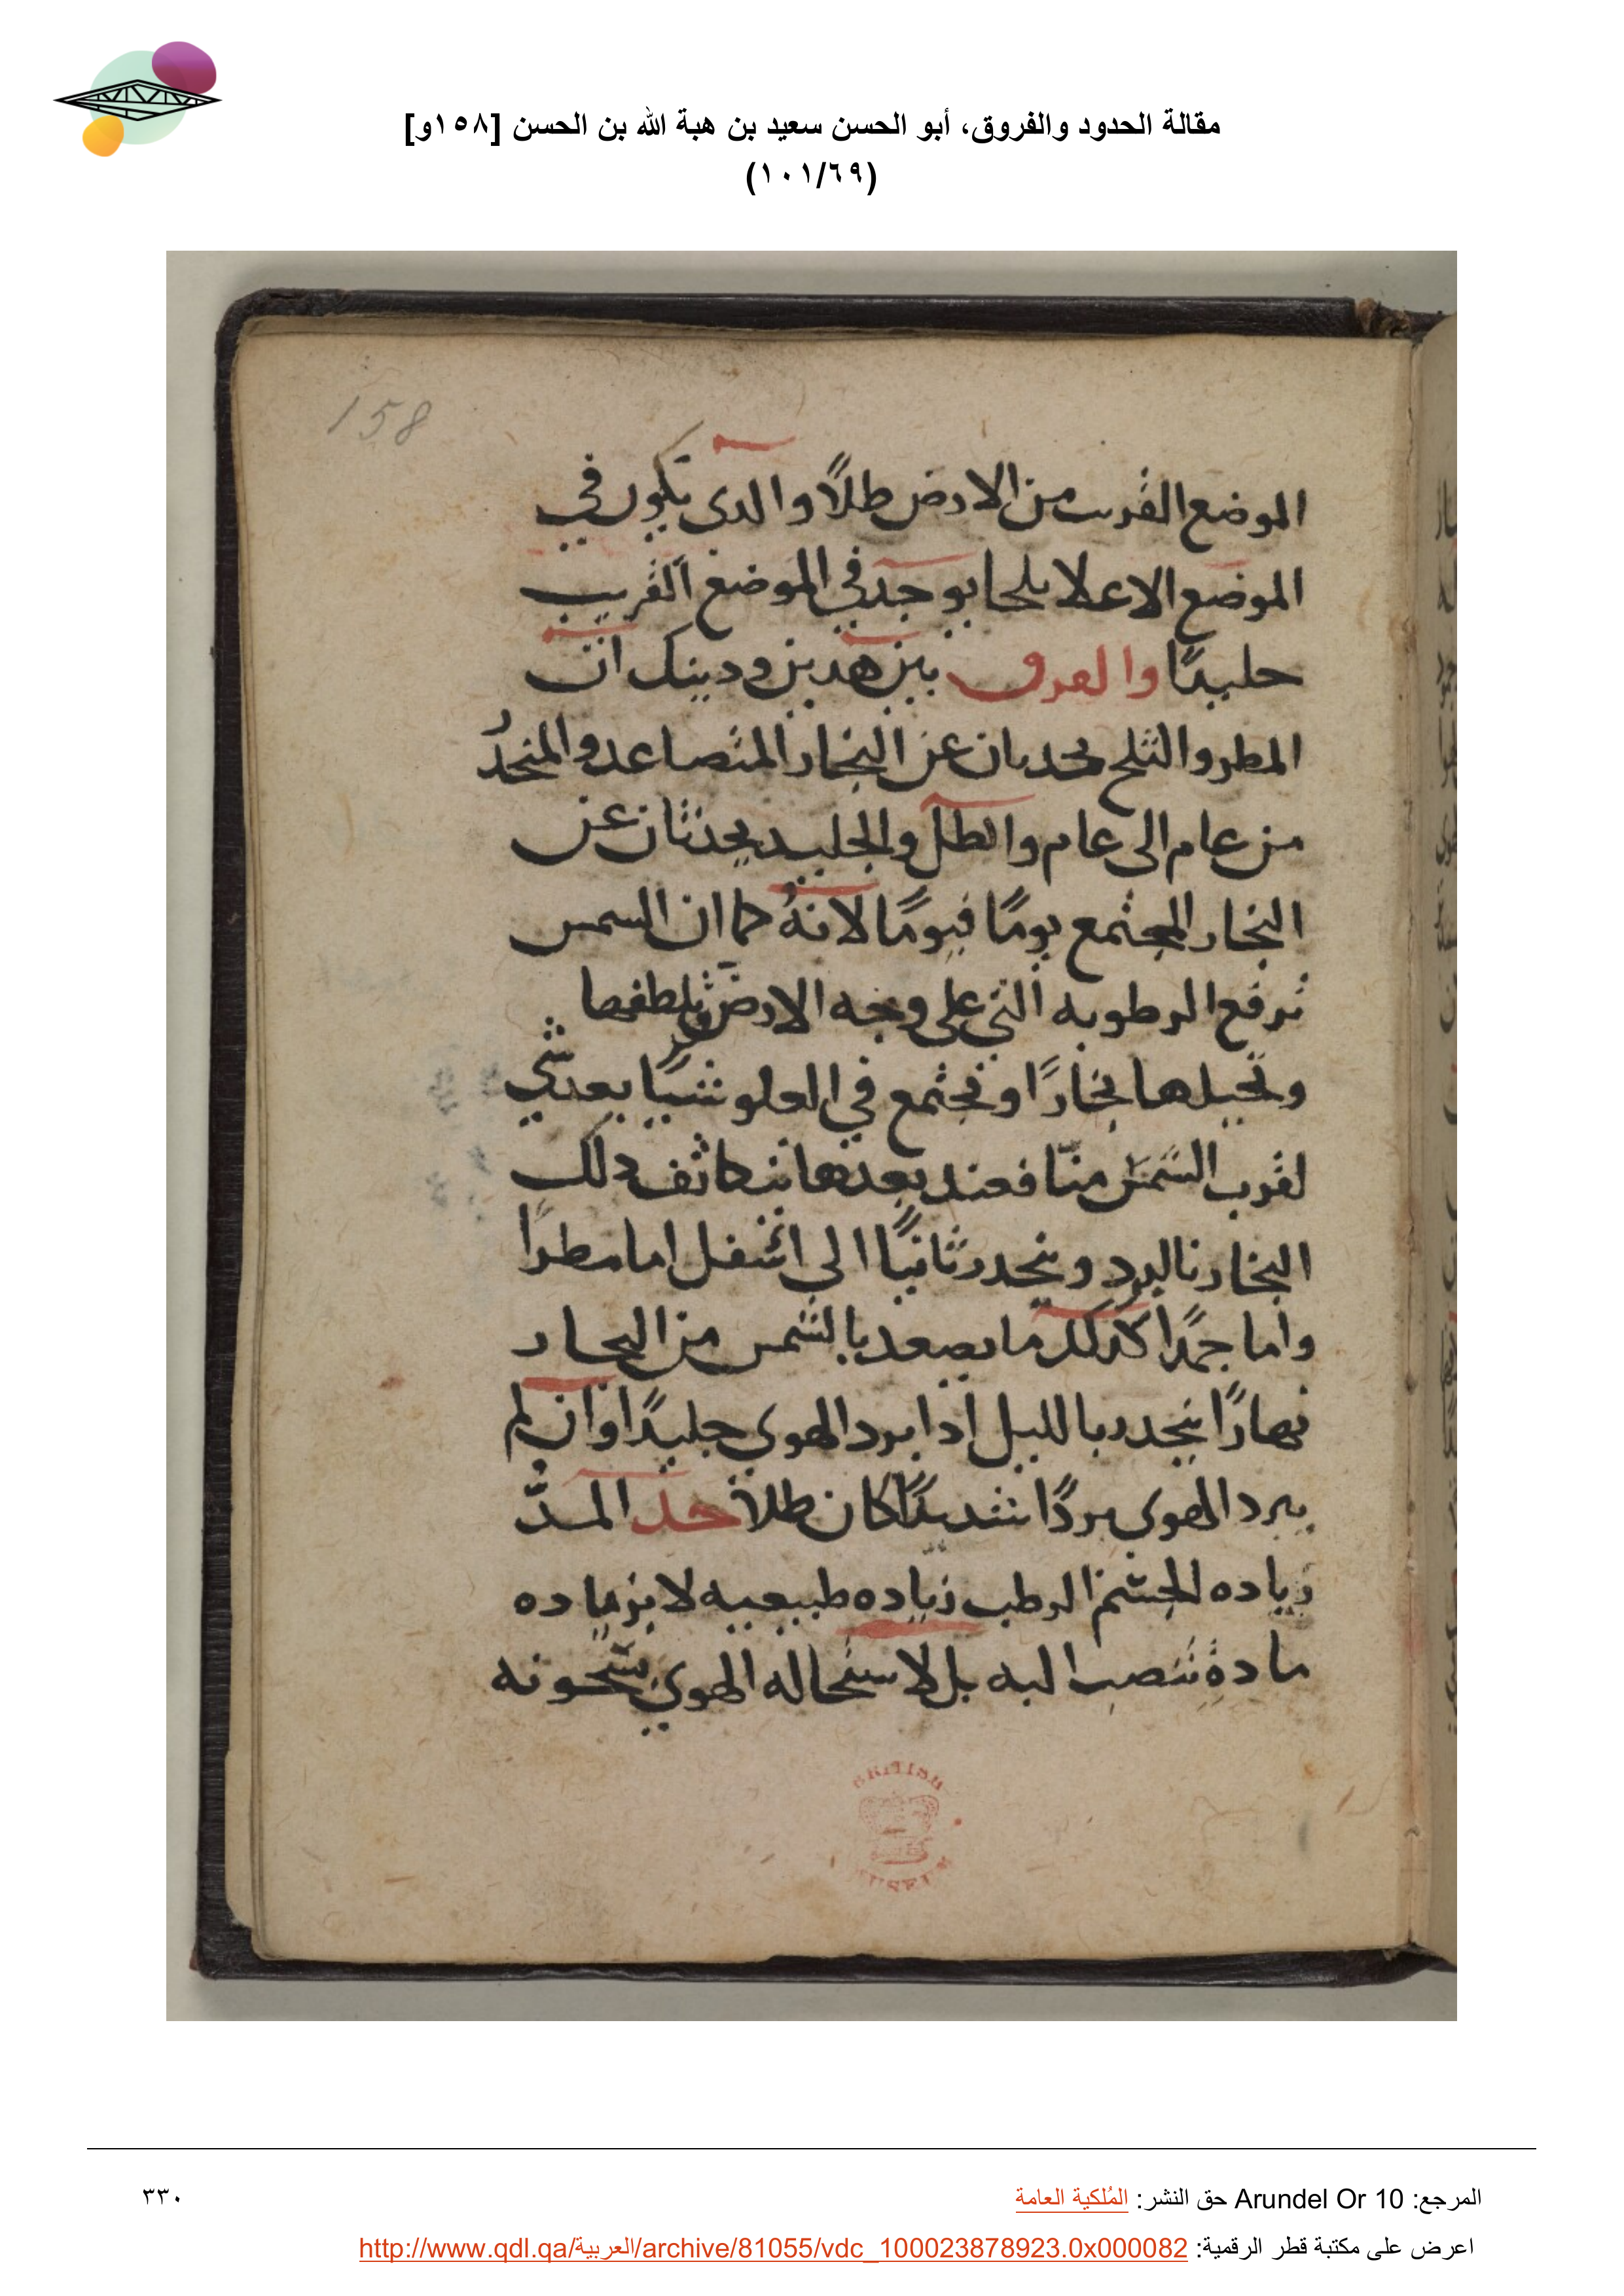 مقالة الحدود والفروق، أبو الحسن سعيد بن هبة الله بن الحسن [١٥٨و]
(١٠١/٦٩)
158
الموضع القريب من الارض طلاً والدى يكون في
الموضع الاعلا ثلجا يوجد في الموضع القريب
جليدًا والفرق بين هدين ودينك ان
المطر والثلج يحدثان عن البخار المتصاعد والمنحدُ
من عام الى عام والطل والجليد يحدثان عن
البخار المجتمع يومًا فيومًا لانهُ كما ان الشمس
ترفع الرطوبه التي على وجه الارض وتلطفها
وتحيلها بخارًا وتجتمع في العلو شيًا بعد شي
لقرب الشمس منّا فعند بعدها يتكاثف دلك
البخار بالبرد وينحدر ثانيًا الى اسفل اما مطرًا
واما جمدًا كدلك ما يصعد بالشمس من البخار
نهارًا ينحدر بالليل ادا برد الهوى جليدًا وان لم
يبرد الهوى بردًا شديدًا كان طلاً حد المدُّ
زياده الجسم الرطب زياده طبيعيه لا بزياده
مادة تنصب اليه بل لاستحاله الهوى بسخونه
BRITISH
MUSEUM
المرجع: Arundel Or 10 حق النشر: المُلكية العامة
٣٣٠
اعرض على مكتبة قطر الرقمية: http://www.qdl.qa/العربية/archive/81055/vdc_100023878923.0x000082